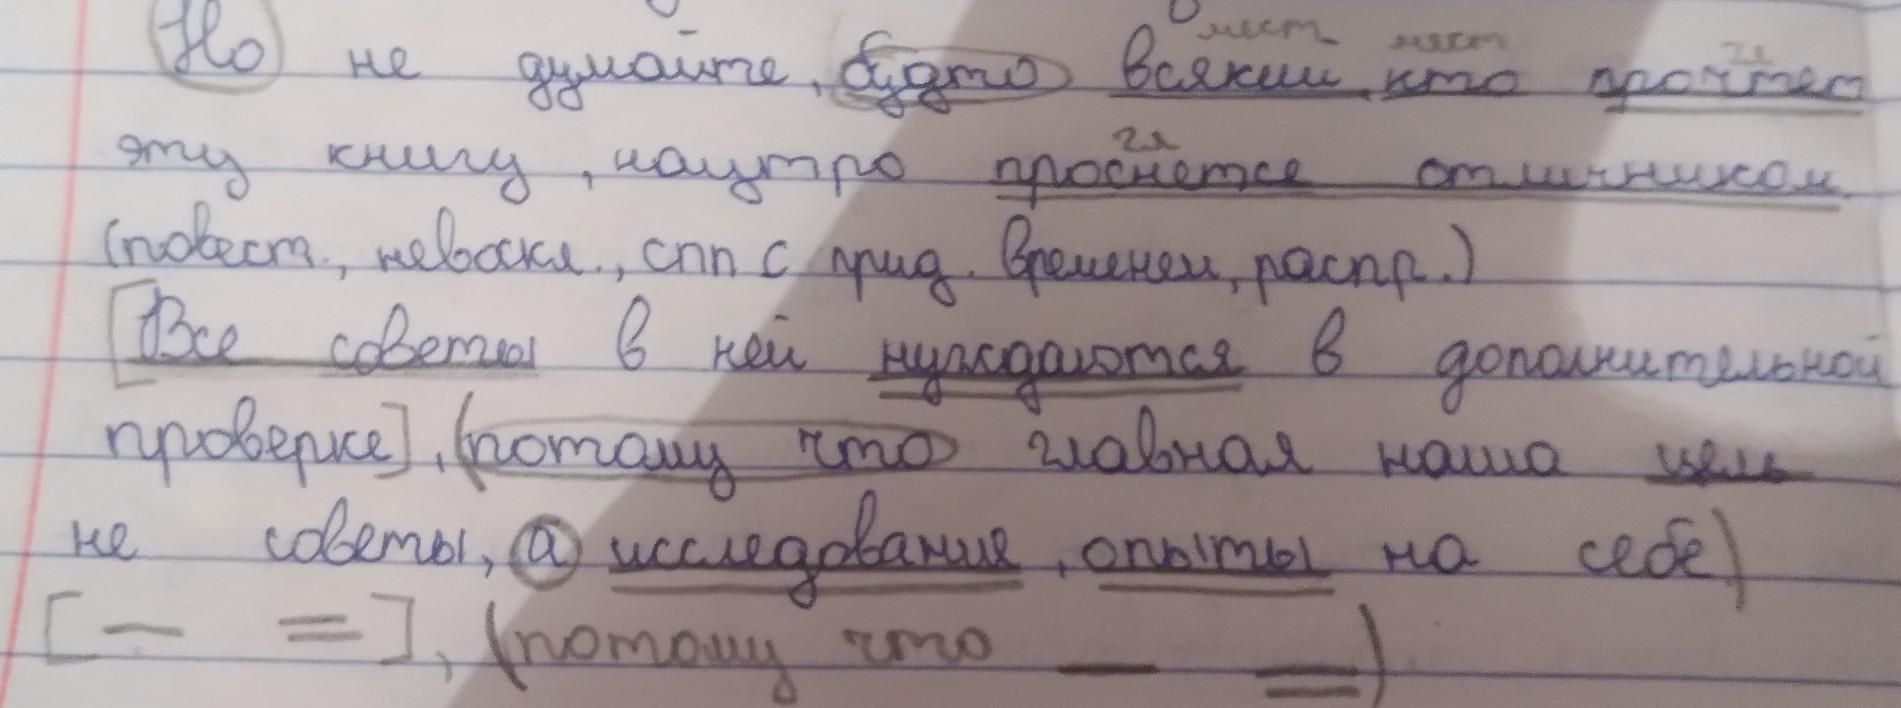 мест мест гл
Но не думайте, будто всякий, кто прочтет
гл
эту книгу, наутро проснется отличником.
(повест., невоскл., спп с прид. временем, распр.)
[Все советы в ней нуждаются в дополнительной
проверке], (потому что главная наша цель
не советы, а исследование, опыты на себе)
[— =], (потому что — =).